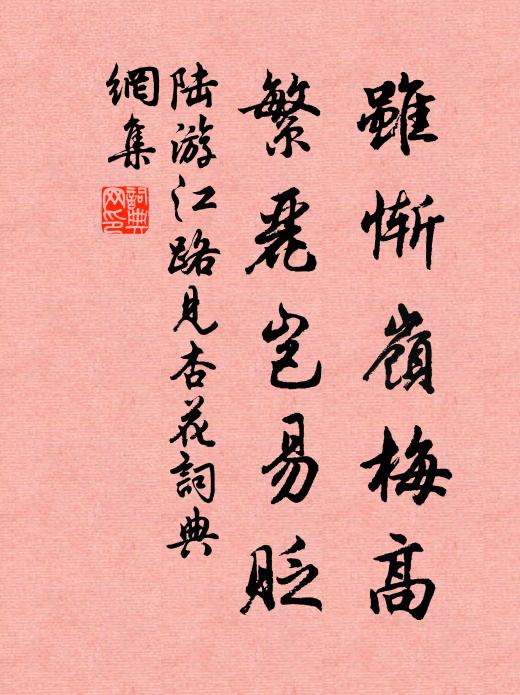 雖慚嶺梅高
繁麗豈易貶
陆游江路見杏花詞典
網集
詞典
网印